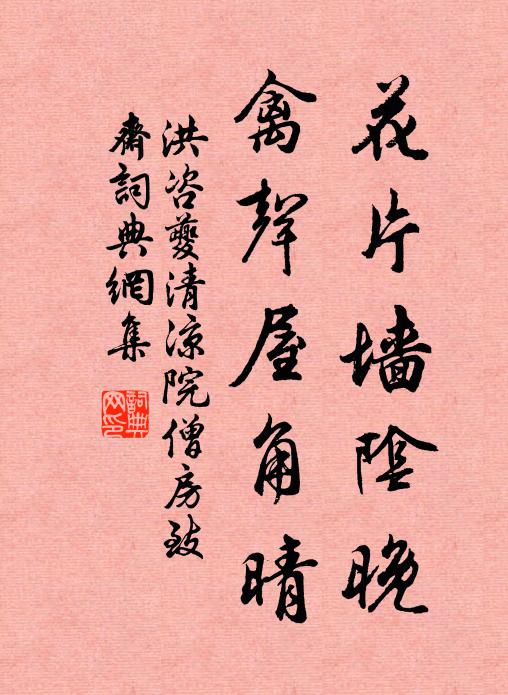 花片墙陰晚
禽聲屋角晴
洪咨夔清凉院僧房致
齋詞典網集
詞典
网印